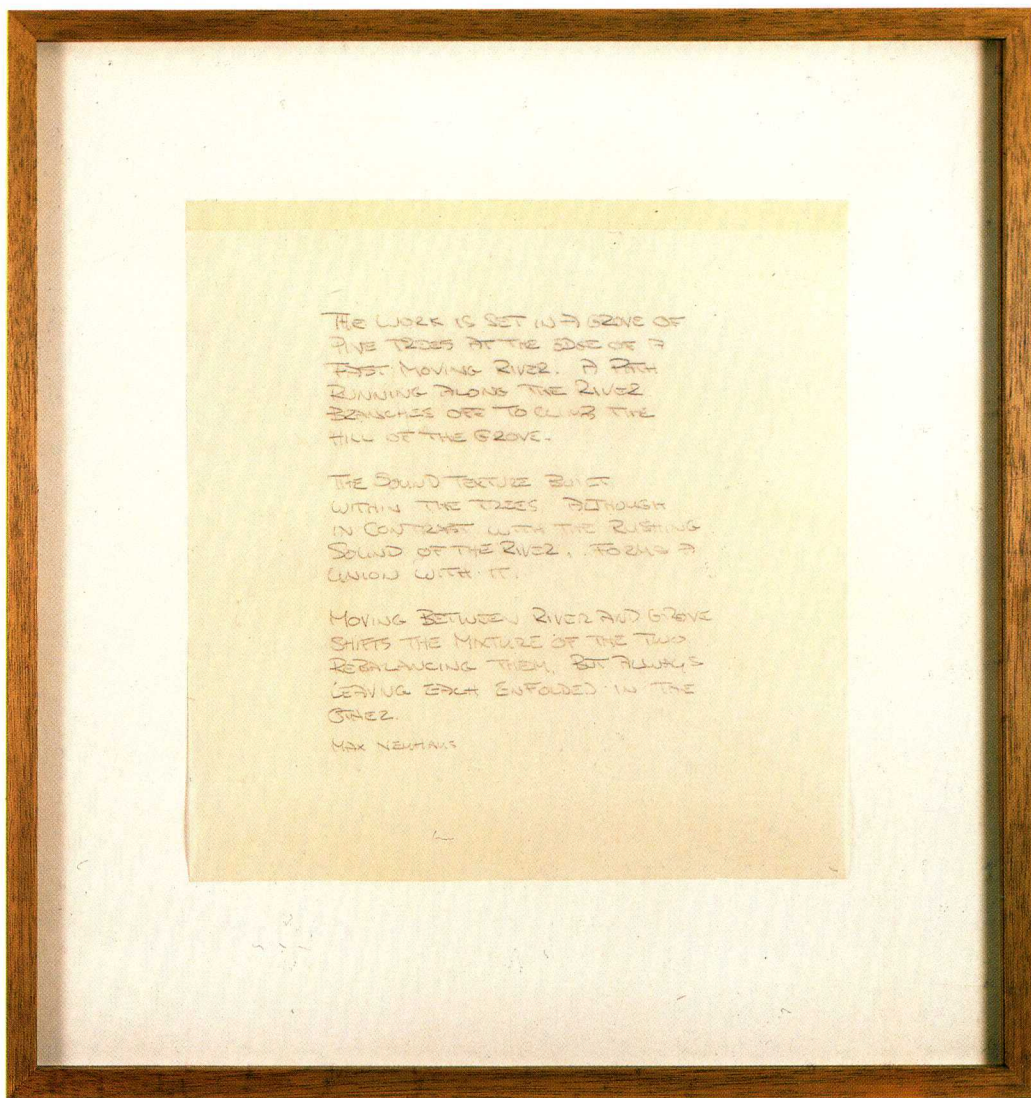 THE WORK IS SET IN A GROVE OF
PINE TREES AT THE EDGE OF A
FAST MOVING RIVER. A PATH
RUNNING ALONG THE RIVER
BRANCHES OFF TO CLIMB THE
HILL OF THE GROVE.
THE SOUND TEXTURE BUILT
WITHIN THE TREES, ALTHOUGH
IN CONTRAST WITH THE RUSHING
SOUND OF THE RIVER, FORMS A
UNION WITH IT.
MOVING BETWEEN RIVER AND GROVE
SHIFTS THE MIXTURE OF THE TWO
REBALANCING THEM, BUT ALWAYS
LEAVING EACH ENFOLDED IN THE
OTHER.
MAX NEUHAUS